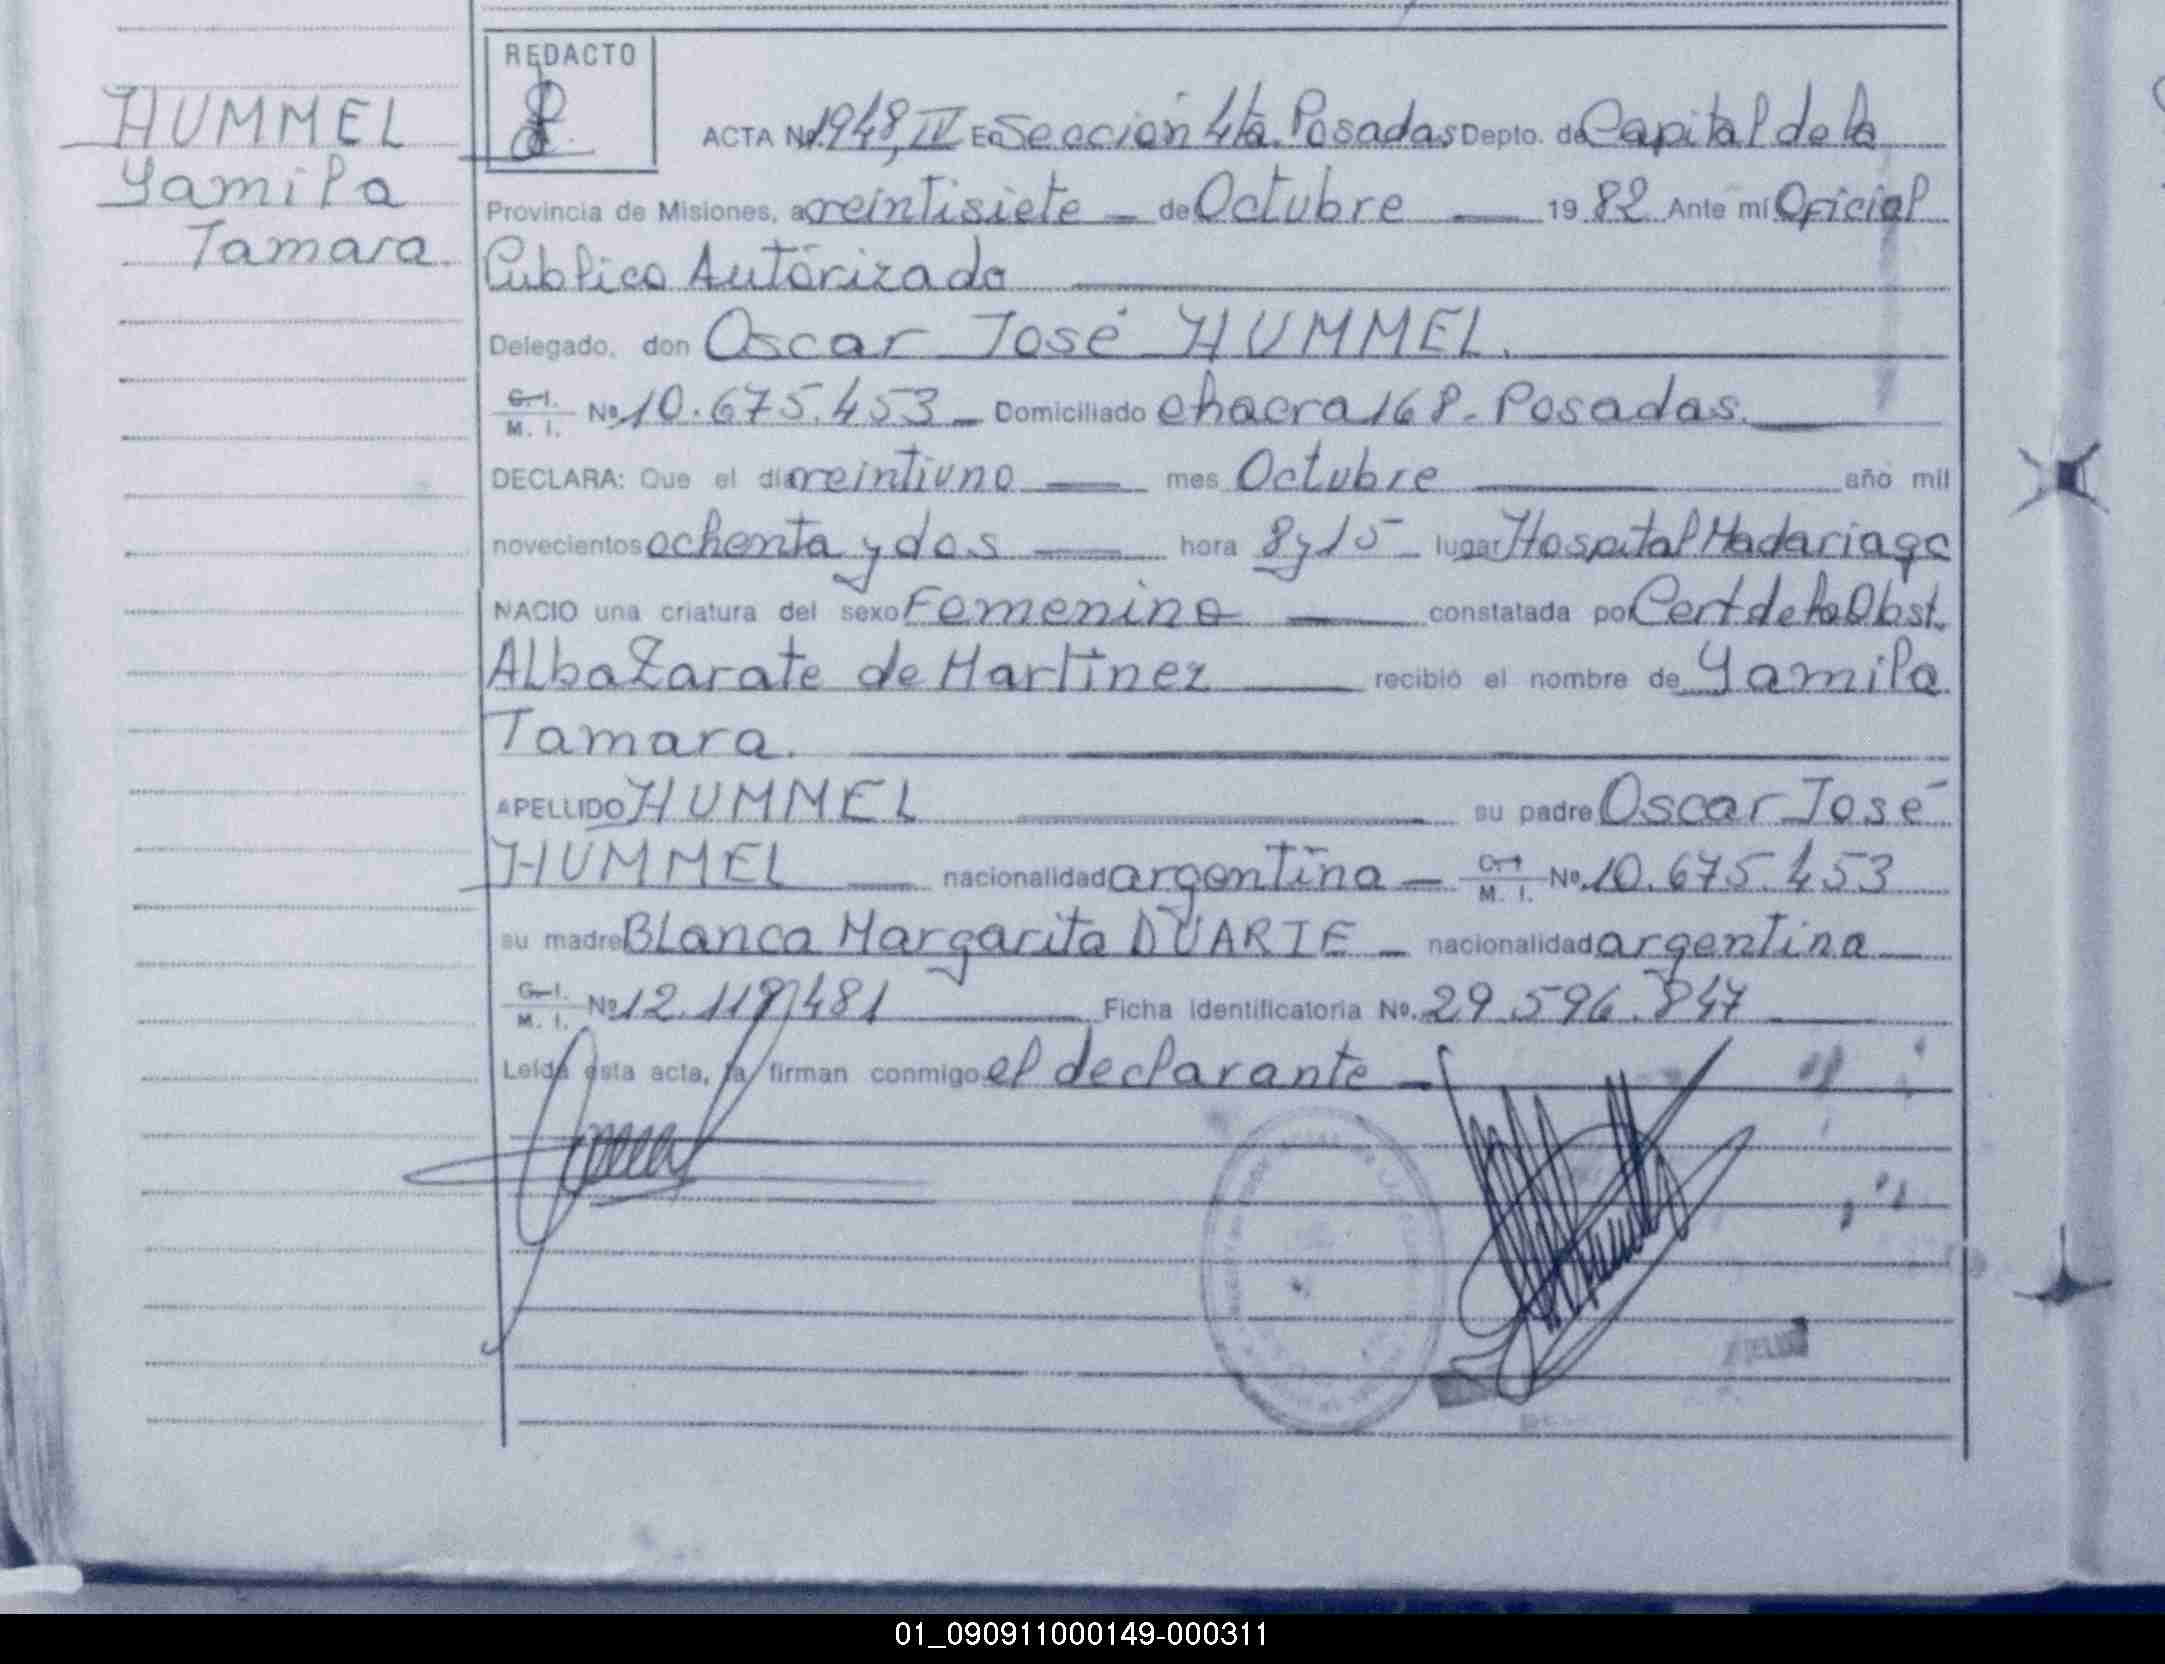 REDACTO
HUMMEL
Yamila
Tamara.
ACTA Nº 1948, IV En Sección 4ta. Posadas Depto. de Capital de la
Provincia de Misiones, a veintisiete de Octubre 19 82 Ante mí Oficial
Publico Autorizado
Delegado, don Oscar José HUMMEL.
C. I. M. I. Nº 10.675.453 Domiciliado chacra 168. Posadas.
DECLARA: Que el día veintiuno mes Octubre año mil
novecientos ochenta y dos hora 8 y 15 lugar Hospital Madariaga
NACIO una criatura del sexo Femenino constatada por Cert de la Obst.
Alba Zarate de Martinez recibió el nombre de Yamila
Tamara.
APELLIDO HUMMEL su padre Oscar José
HUMMEL nacionalidad argentina C. I. M. I. Nº 10.675.453
su madre Blanca Margarita DUARTE nacionalidad argentina
C. I. M. I. Nº 12.118.481 Ficha identificatoria Nº. 29.596.847
Leída esta acta, la firman conmigo el declarante
01_090911000149-000311